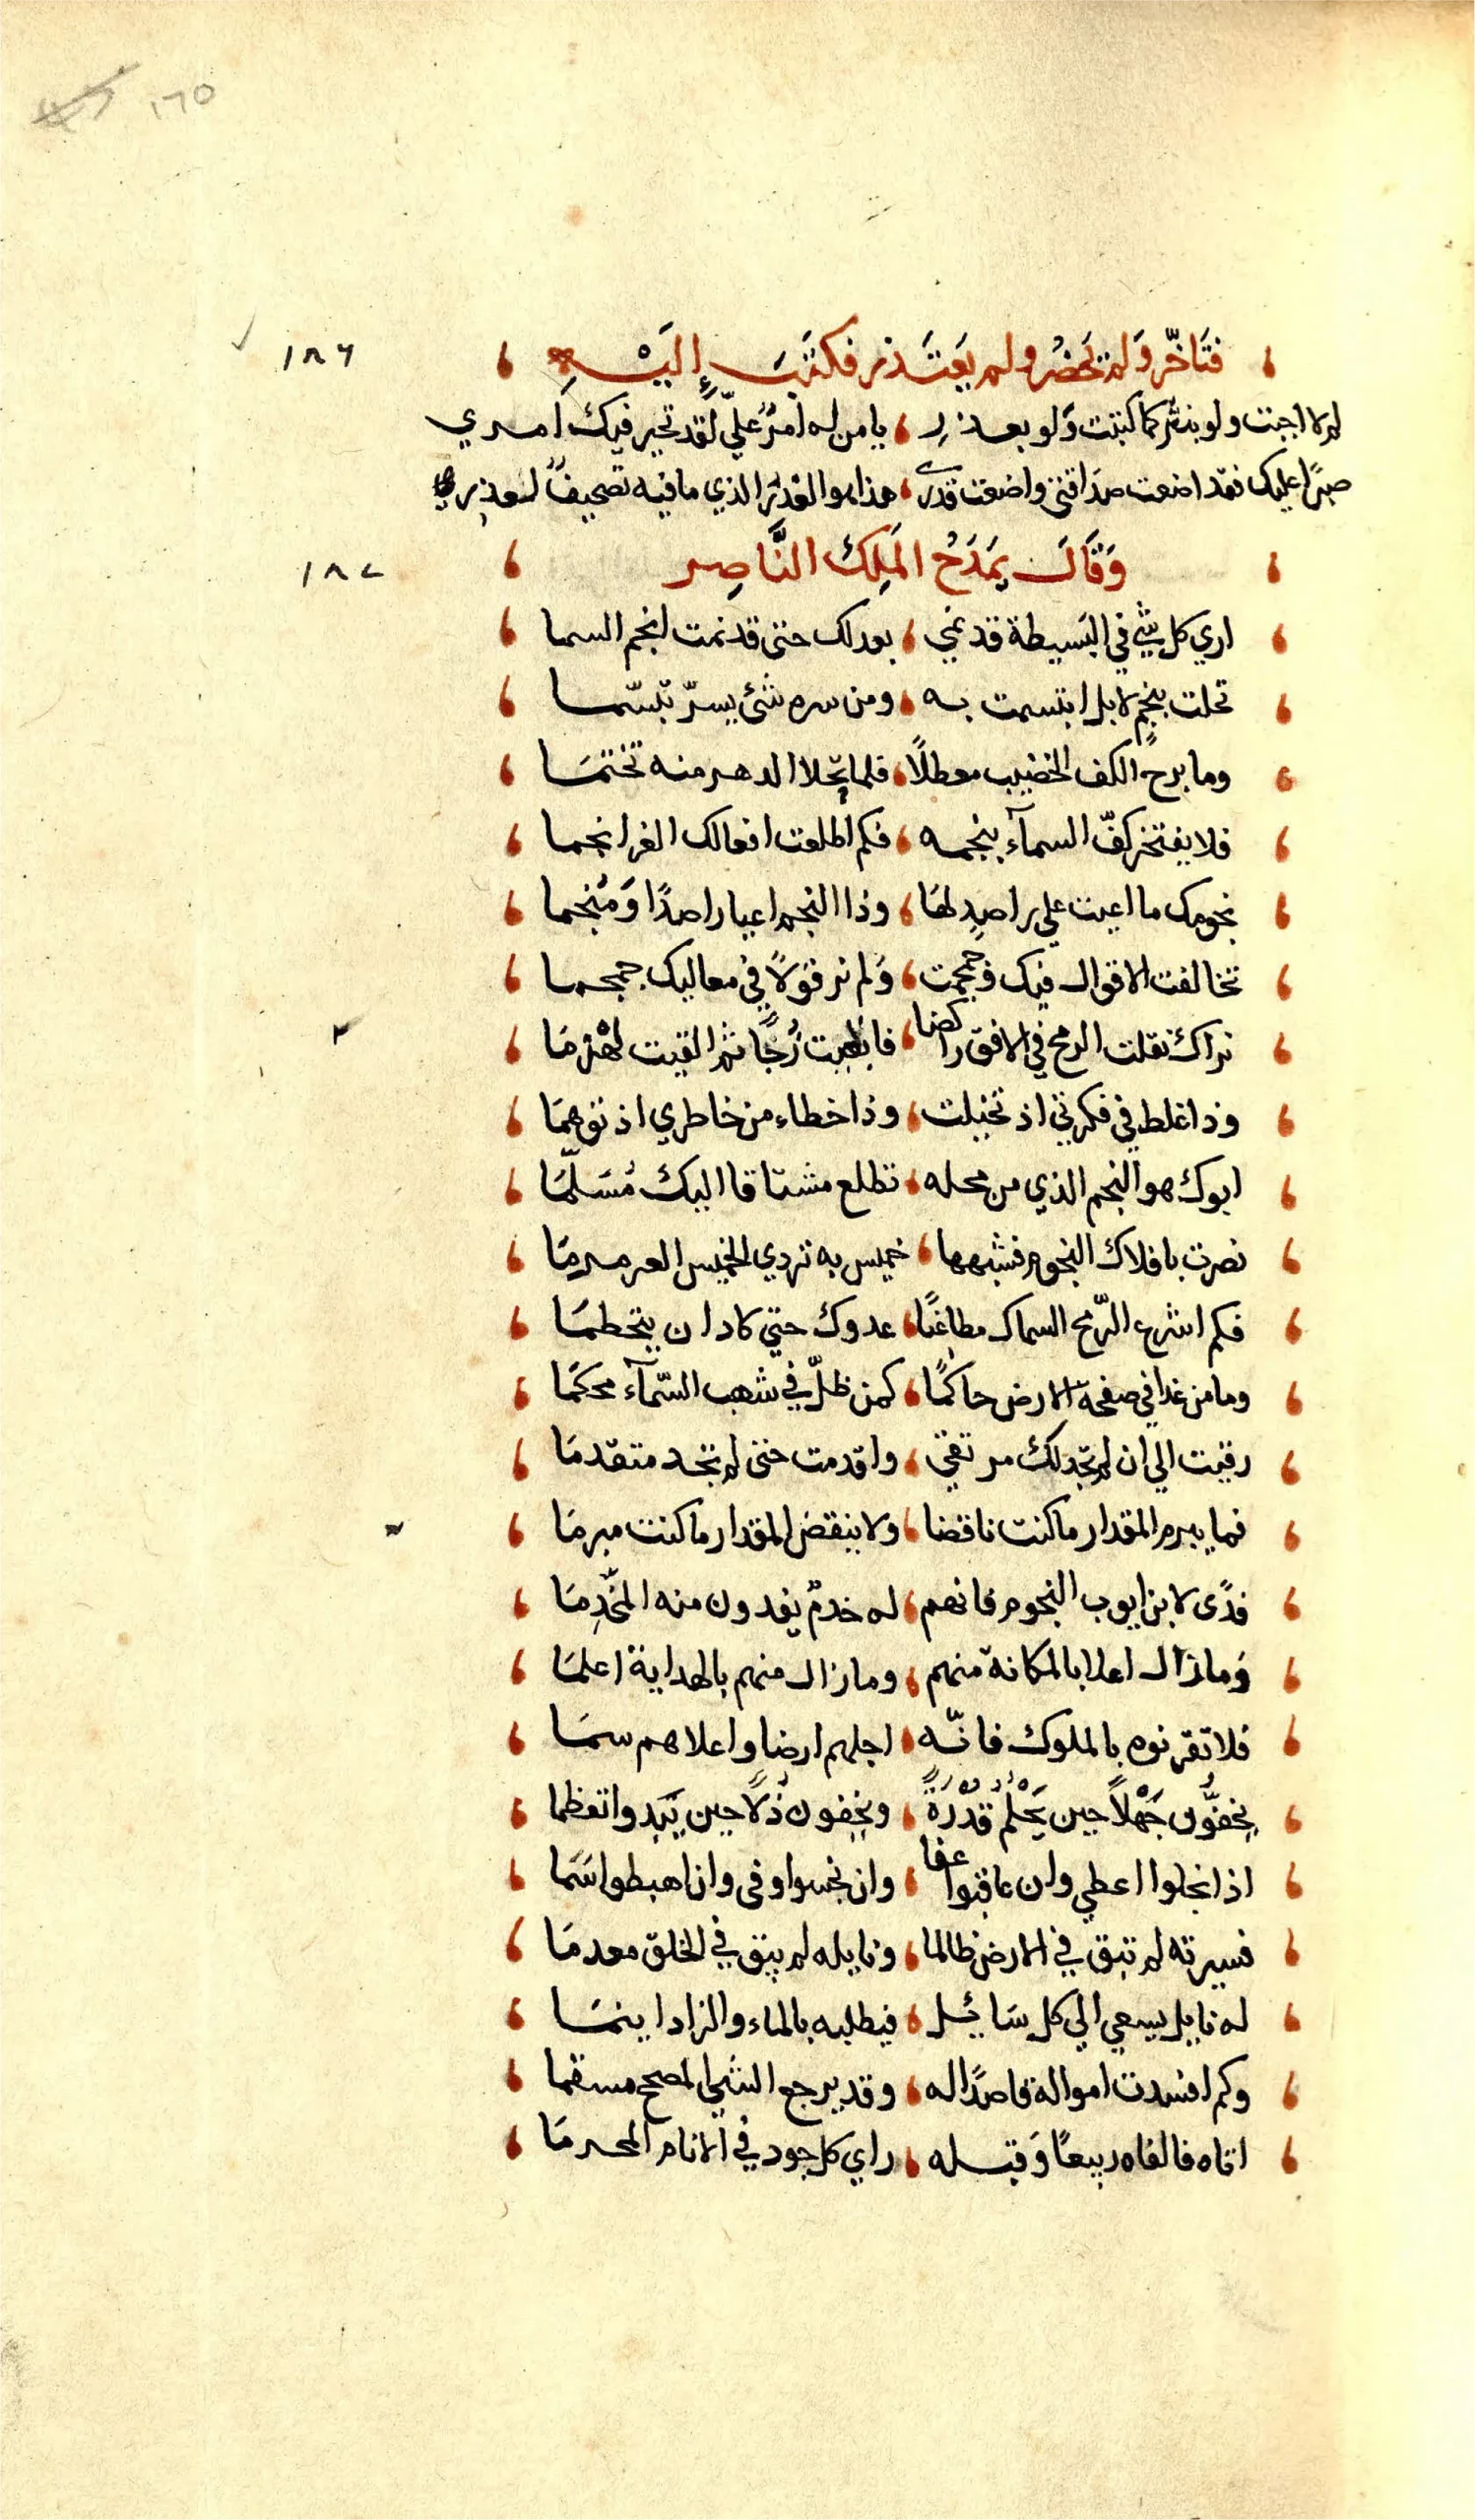 ١٦٥
فتَاخّر وَلم يحَضُر ولم يعَتَذر فكتَبَ إِليَــْـهِ ١٨٦
لم لا اجبت ولو بنثر كما كتبت وَلو بعذر ، يا من له امرٌ عليّ لقد تحير فيك امري
صبرًا عليك فقد اضعت صداقتي واضعت قدري ، هذا هو الغدر الذي ما فيه تصحيفٌ لعذري
وَقَالَ يمَدَحُ المَلِكَ النَّاصِر ١٨٧
اري كل شي في البَسيطة قد نمي ، بعدلك حتى قد نمت انجم السما
تحلت بنجمٍ لا بل ابتسمت به ، ومن سره شئ يسرّ تبسّما
وما برح الكف الخضيب معطلاً ، فلما تحلا الدهر منه تختمَا
فلا يفتخر كفّ السمآء بنجمه ، فكم اطلعت افعالك الغر انجما
نجومك ما اعيت علي راصدٍ لهَا ، وذا النجم اعيا راصدًا وَمُنجما
تخالفت الاقوال فيك وجمجمت ، وَلم نر قوَلاً في معاليك جمجما
نراك نقلت الرمح في الافق راكضا ، فابقيت زُجًّا ثم القيت لهْذمَا
وذا غلط في فكرتي اذ تخيلت ، وذا خطاء من خاطري اذ توهمَا
ابوك هو النجم الذي من محله ، تطلع مشتاقا اليك مُسَلّمَا
نصرت بافلاك النجوم فشبهها ، خميس به تردي الخميس العرمرمَا
فكم اشرع الرّمح السماك مطاعنًا ، عدوك حتي كاد ان يتحطمَا
وما من غدا في صفحة الارض حاكمًا ، كمن ظلّ في شهب السّمآء محكمَا
رقيت الي ان لم تجد لك مرتقي ، واقدمت حتى لم تجد متقدمَا
فما يبرم المقدار ما كنت ناقضا ، ولا ينقض المقدار ما كنت مبرمَا
فدًى لابن ايوب النجوم فانهم ، له خدمٌ يفدون منه المخَّدِمَا
وَما زال اعلا بالمكانة منهم ، وما زال منهم بالهداية اعلمَا
فلا تقرنوه بالملوك فانّه ، اجلهم ارضا واعلاهم سمَا
يخفوُّن جَهْلاً حين يَحْلُم قدْرَةً ، ويخفون ذُلاًّ حين يَبدوا تعظما
اذا بخلوا اعطي وان عاقبوا عفا ، وان نجسوا وفى وان هبطوا سَمَا
فسيرته لم تبق في الارض ظالما ، ونايله لم يبق في الخلق معدمَا
له نايل يسعي الي كل سَائيل ، فيطلبه بالماء والزاد اينمَا
وكم افسدت امواله قاصدًا له ، وقد يرجع الشي المصحح مسقما
اتاه فالفاه ربيعًا وَقبله ، راي كل جود في الانام المحرمَا